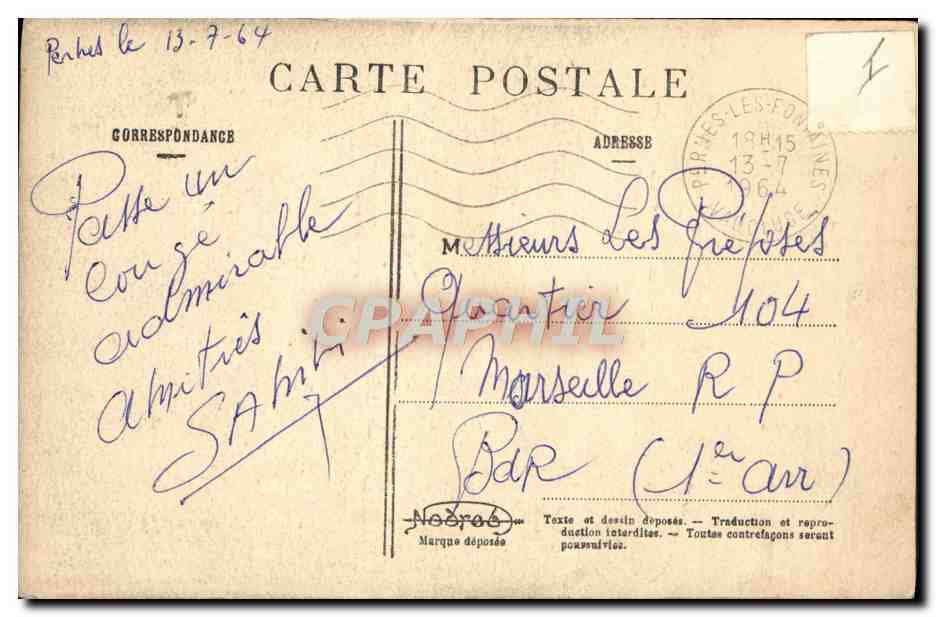 Pernes le 13-7-64
CARTE POSTALE
CORRESPONDANCE
ADRESSE
PERNES-LES-FONTAINES
18H15
13-7
1964
VAUCLUSE
I
Passe un
congé
admirable
amitiés
Messieurs Les Préposés
Quartier 104
Marseille R P
BdR (1er arr)
CPAPHIL
Marque déposée
Texte et dessin déposés. — Traduction et repro-
duction interdites. — Toutes contrefaçons seront
poursuivies.